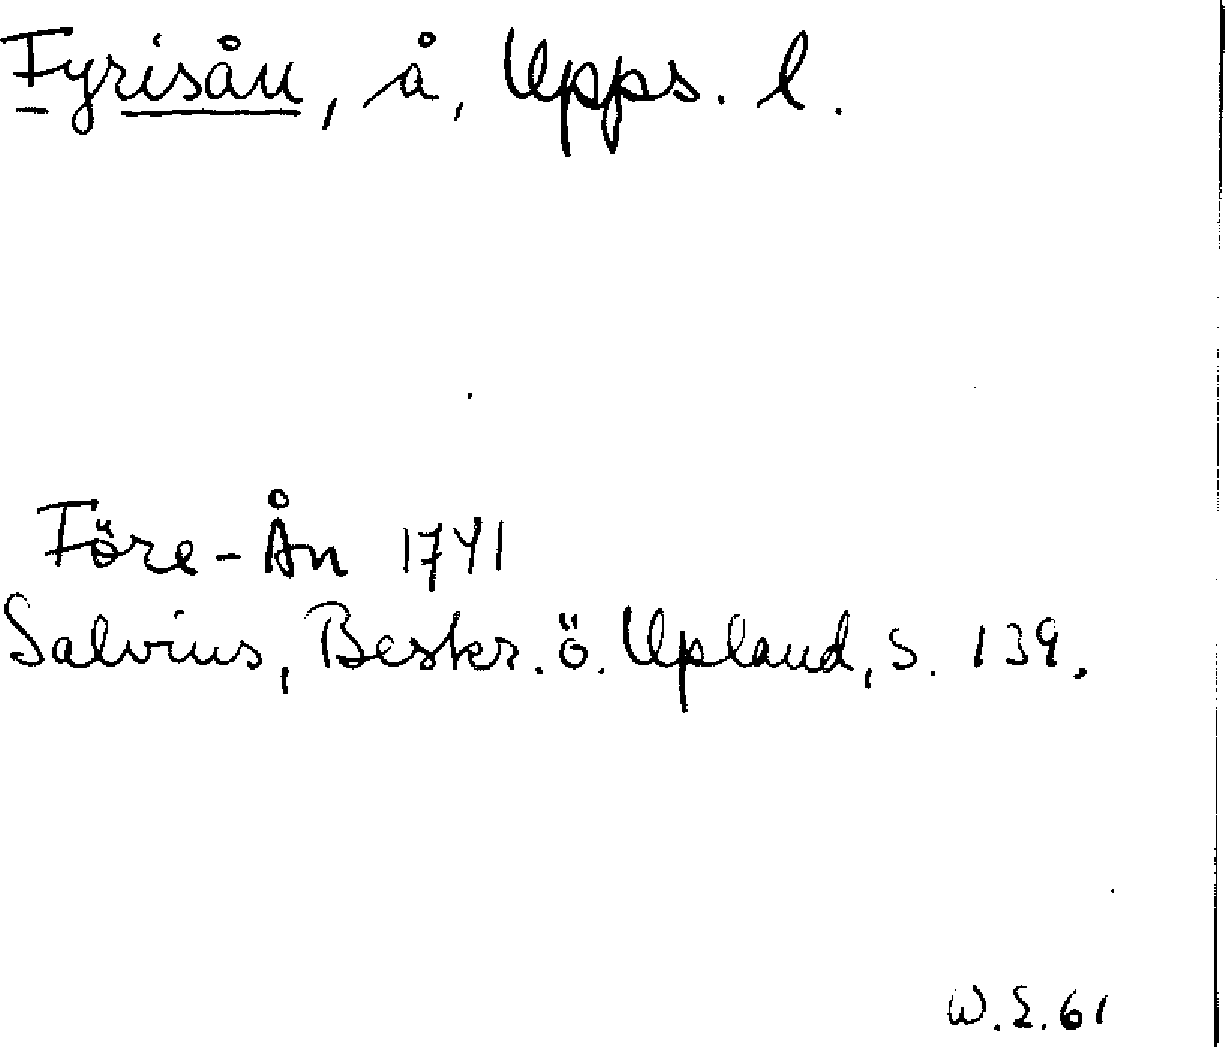 Fyrisån, å, Upps. l.
Före-Ån 1741
Salvius, Beskr. ö. Upland, S. 139.
W.E.61